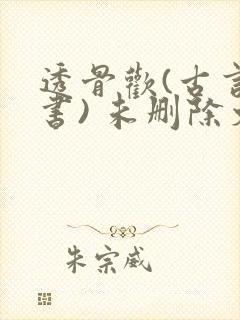 透骨歡(古言
書)未删除
朱宗威